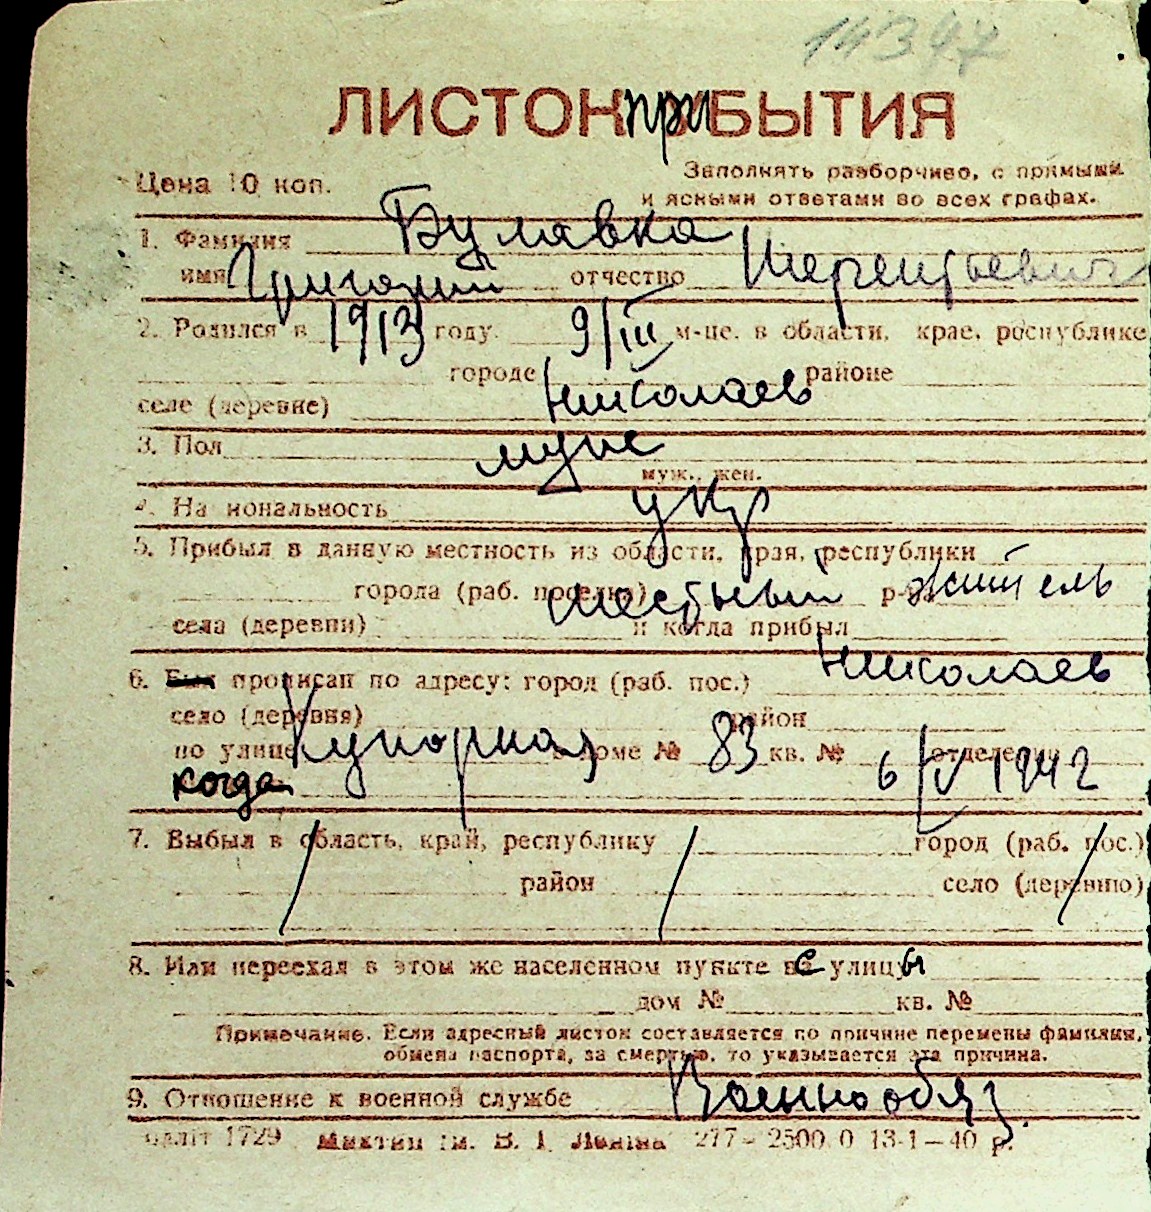 14347
ЛИСТОК при БЫТИЯ
Цена 10 коп.
Заполнять разборчиво, с прямыми
и ясными ответами во всех графах.
1. Фамилия Булавка
имя Григорий отчество Терентьевич
2. Родился в 1913 году. 9/III м-це. в области, крае, республике
городе Николаев районе
селе (деревне)
3. Пол муж
муж., жен.
4. Национальность укр
5. Прибыл в данную местность из области, края, республики
города (раб. поселка) местный житель
села (деревни) и когда прибыл
6. Был прописан по адресу: город (раб. пос.) Николаев
село (деревня) район
по улице доме № 83 кв. № отделения
когда 6/V 1942
7. Выбыл в область, край, республику город (раб. пос.)
район село (деревню)
8. Или переехал в этом же населенном пункте с улицы
дом № кв. №
Примечание. Если адресный листок составляется по причине перемены фамилии,
обмена паспорта, за смертью, то указывается эта причина.
9. Отношение к военной службе Военнообяз.
1729 ім. В. І. Леніна 277 – 2500.0 13-1–40 р.